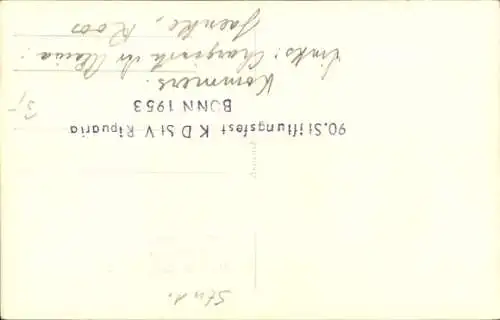 90. Stiftungsfest K D St V Ripuaria
BONN 1953
Kommers.
Links: Chargierte der Alania:
Jaenke, Roos
3,-
Stud.